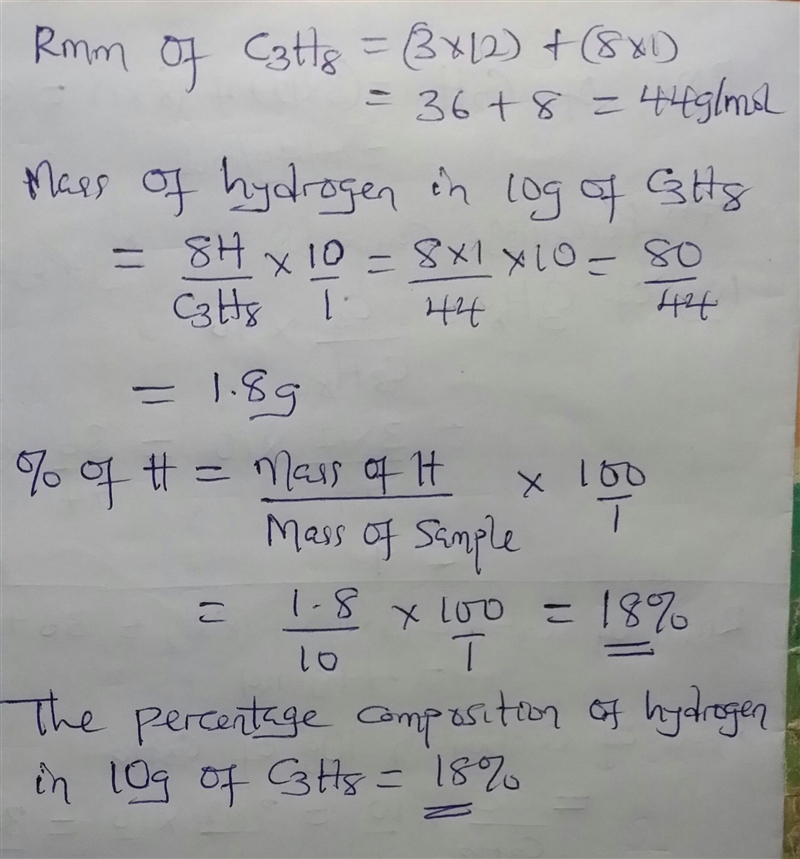 Rmm of C3H8 = (3x12) + (8x1)
= 36 + 8 = 44g/mol
Mass of hydrogen in 10g of C3H8
= 8H/C3H8 x 10/1 = 8x1/44 x10 = 80/44
= 1.8g
% of H = Mass of H/Mass of Sample x 100/1
= 1.8/10 x 100/1 = 18%
The percentage composition of hydrogen
in 10g of C3H8 = 18%